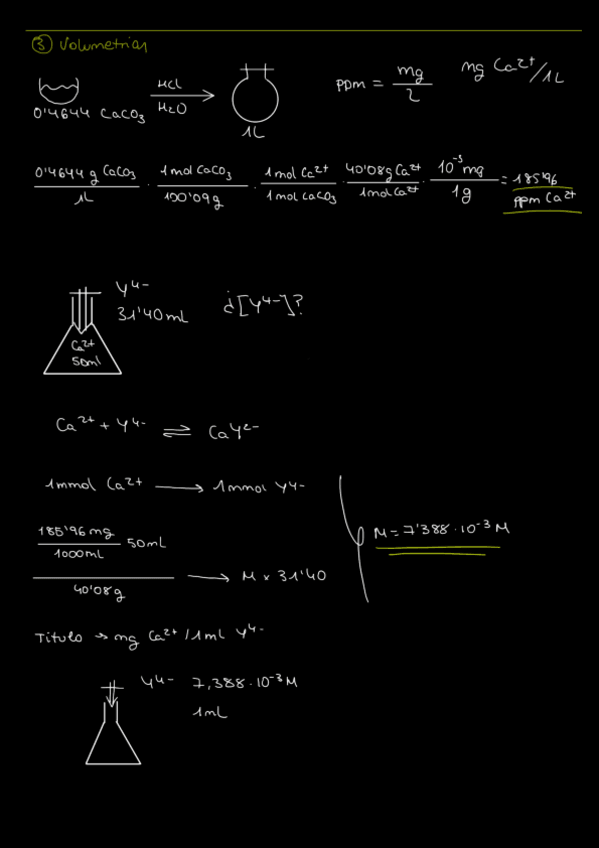 ③ Volumetrias
0'4644 CaCO₃ HCl H₂O 1L ppm = mg/L mg Ca²⁺/1L
0'4644 g CaCO₃/1L · 1mol CaCO₃/100'09g · 1mol Ca²⁺/1mol CaCO₃ · 40'08g Ca²⁺/1mol Ca²⁺ · 10⁻³mg/1g = 185'96 ppm Ca²⁺
Y⁴⁻
31'40mL ¿[Y⁴⁻]?
Ca²⁺
50ml
Ca²⁺ + Y⁴⁻ ⇌ CaY²⁻
1mmol Ca²⁺ → 1mmol Y⁴⁻
185'96 mg/1000mL 50mL
M = 7'388 · 10⁻³ M
→ M × 31'40
40'08g
Titulo → mg Ca²⁺ / 1ml Y⁴⁻
Y⁴⁻ 7,388 · 10⁻³ M
1mL